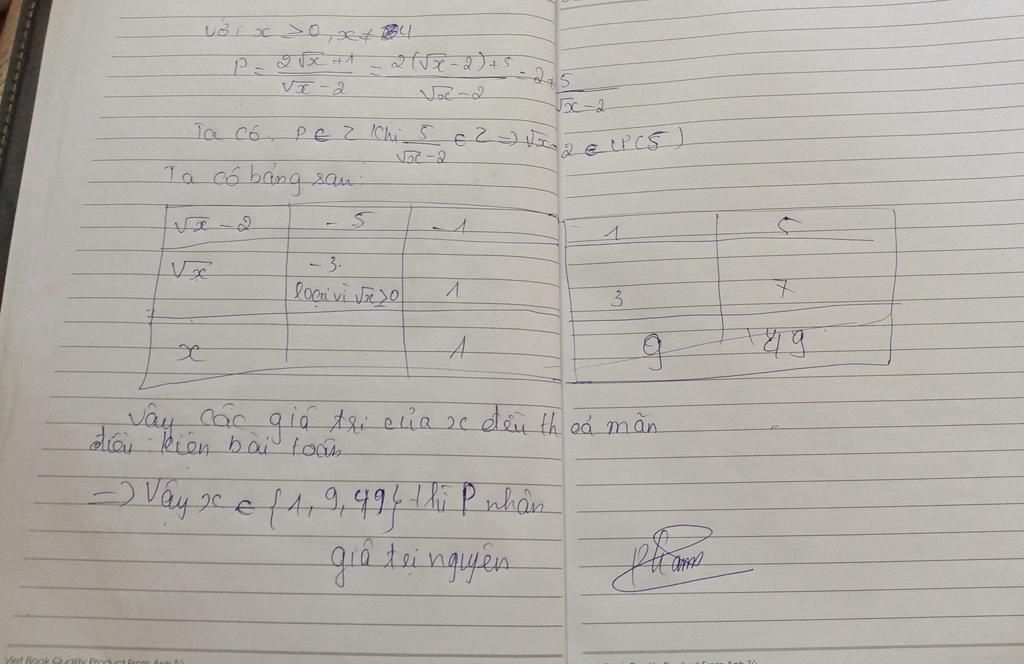 Với x ≥ 0, x ≠ 4
P = (2√x + 1)/(√x - 2) = (2(√x - 2) + 5)/(√x - 2) = 2 + 5/(√x - 2)
Ta có, P ∈ Z khi 5/(√x - 2) ∈ Z => √x - 2 ∈ Ư(5)
Ta có bảng sau:
√x - 2 | - 5 | - 1 | 1 | 5
√x | - 3. loại vì √x ≥ 0 | 1 | 3 | 7
x | | 1 | 9 | 49
Vậy các giá trị của x đều thoả mãn
điều kiện bài toán
=> Vậy x ∈ {1, 9, 49} thì P nhận
giá trị nguyên
Viet Book Quality Product From Anh Tú